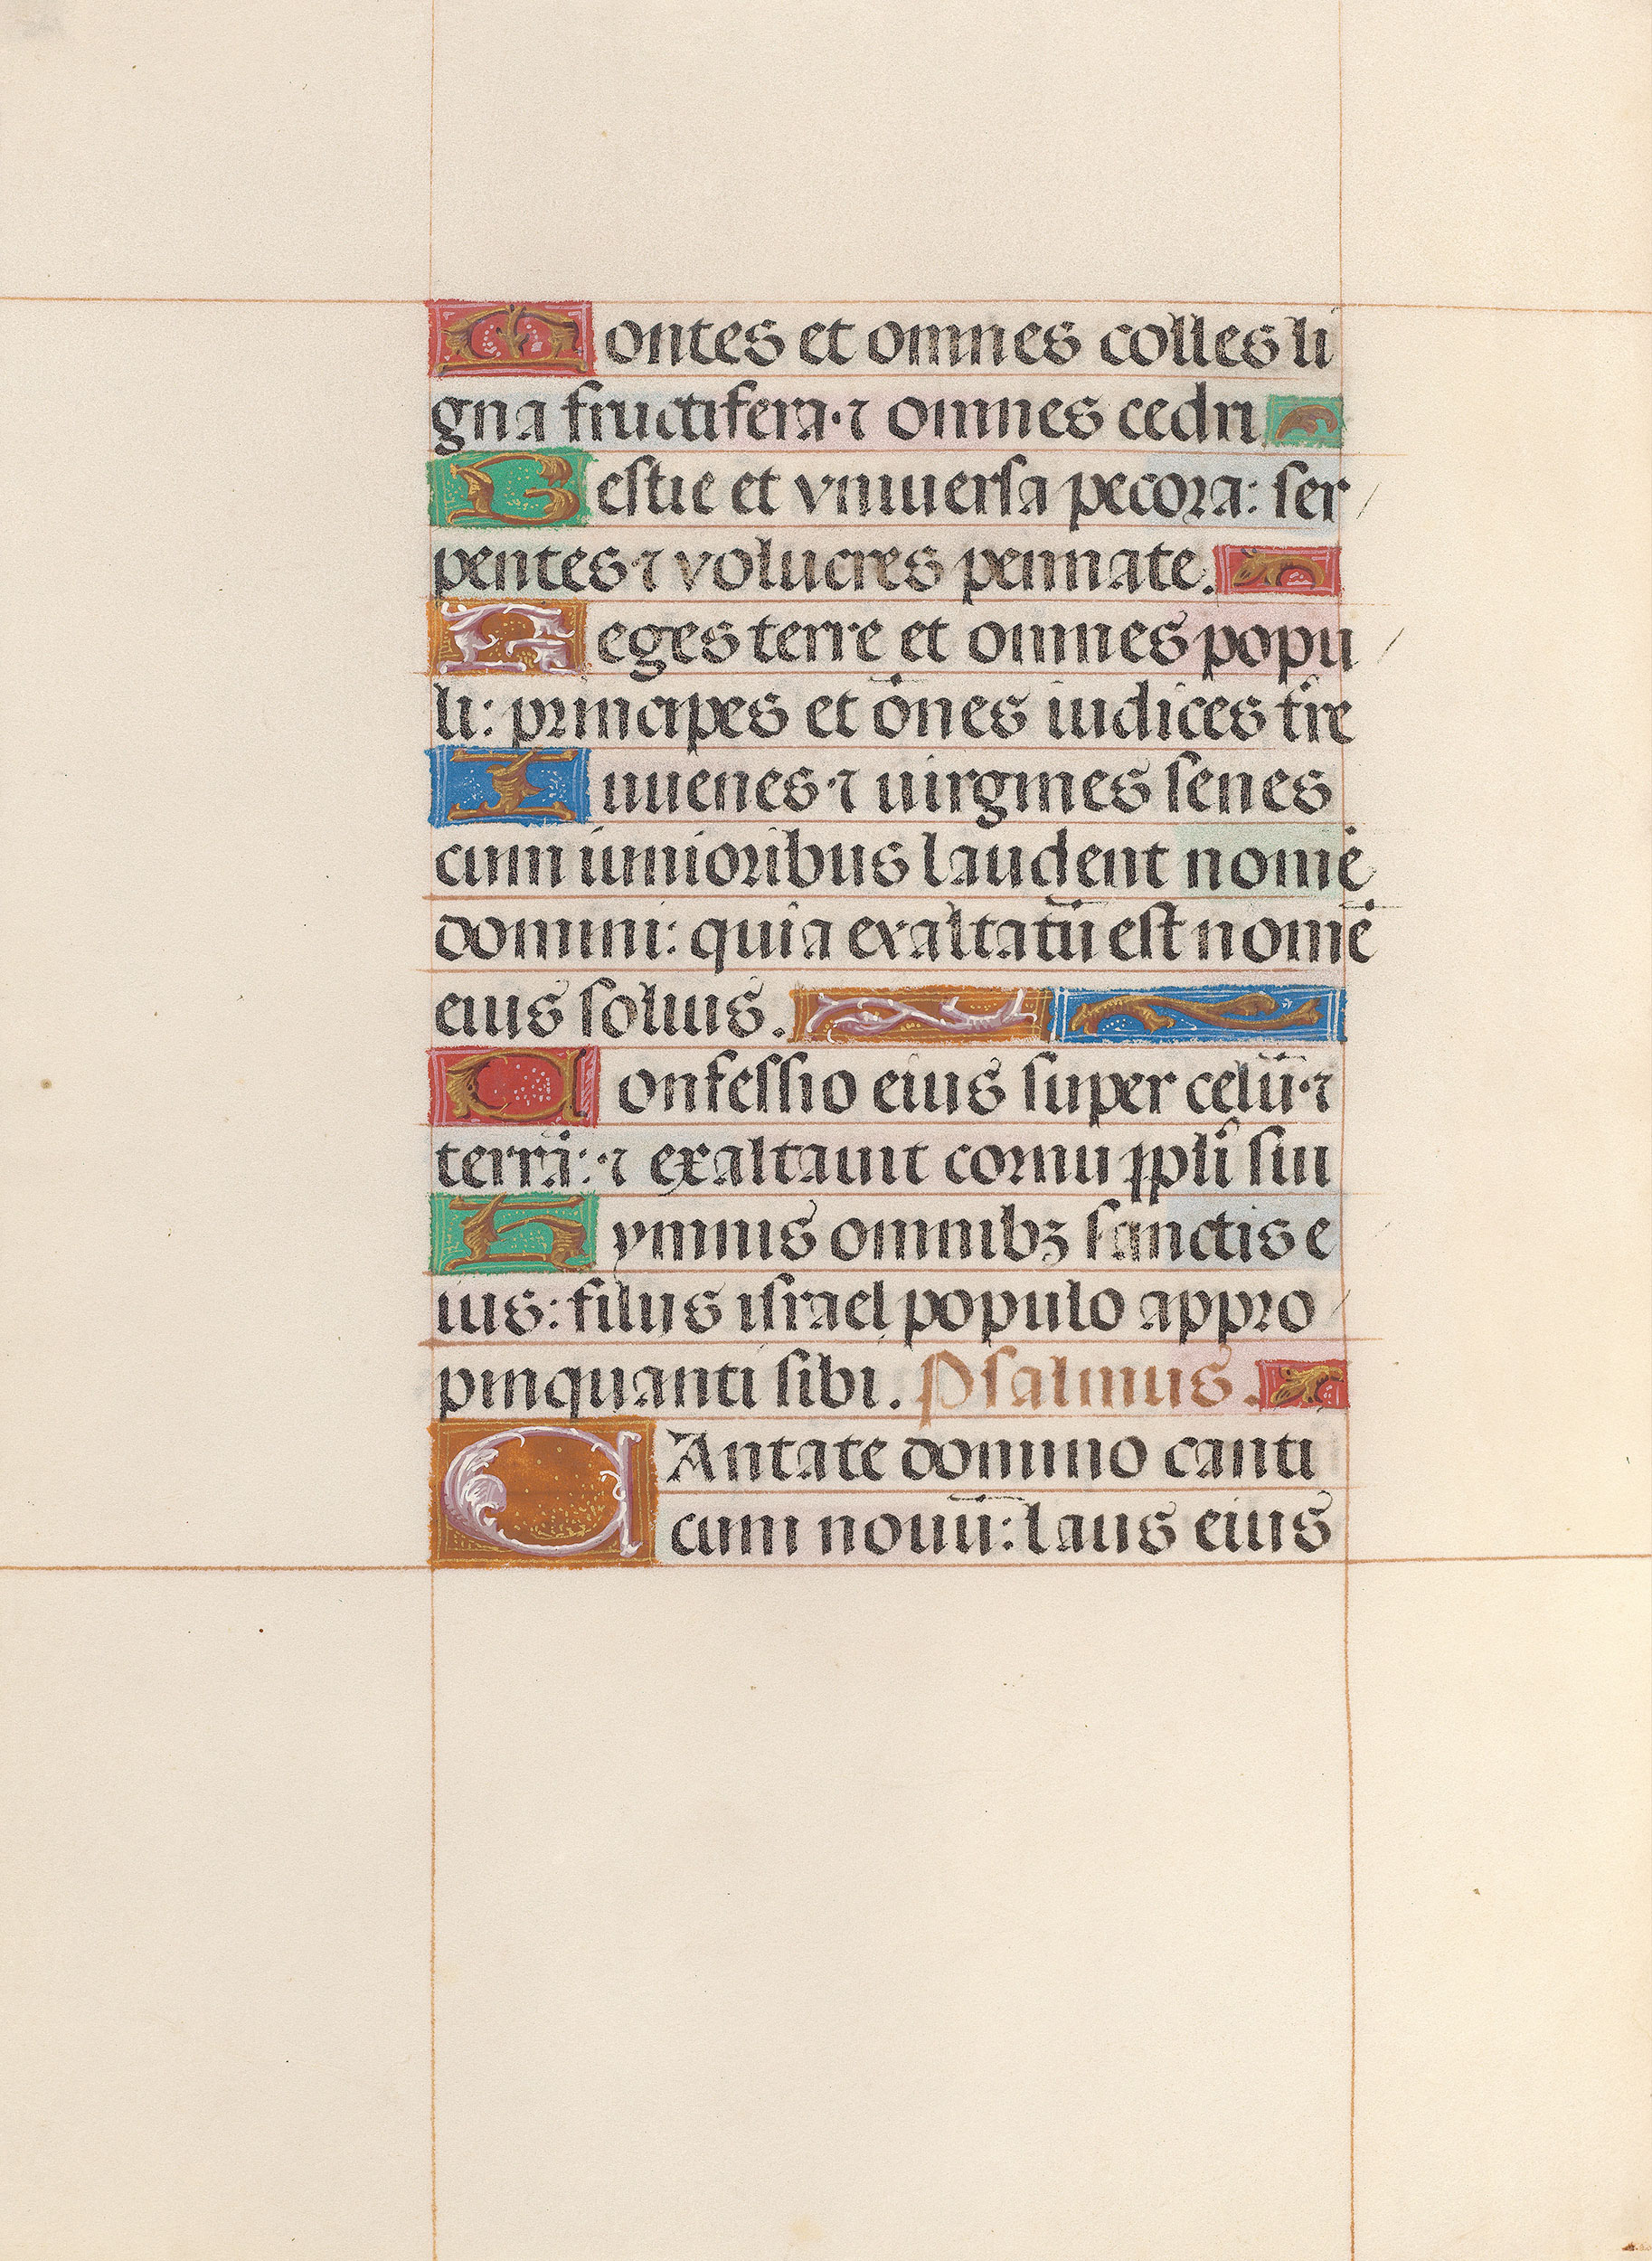 Montes et omnes colles li
gna fructifera·⁊ omnes cedri
Bestie et vniuersa pecora: ser
pentes·⁊ volucres pennate.
Reges terre et omnes popu
li: principes et ōnes iudices tr̄e
Iuuenes·⁊ uirgines senes
cum iunioribus laudent nomē
domini: quia exaltatū est nomē
eius solius.
Confessio eius super celū·⁊
terrā:·⁊ exaltauit cornu ppl̄i sui
Hymnus omnibꝫ sanctis e
ius: filijs israel populo appro
pinquanti sibi. Psalmus.
CAntate domino canti
cum nouū: laus eius